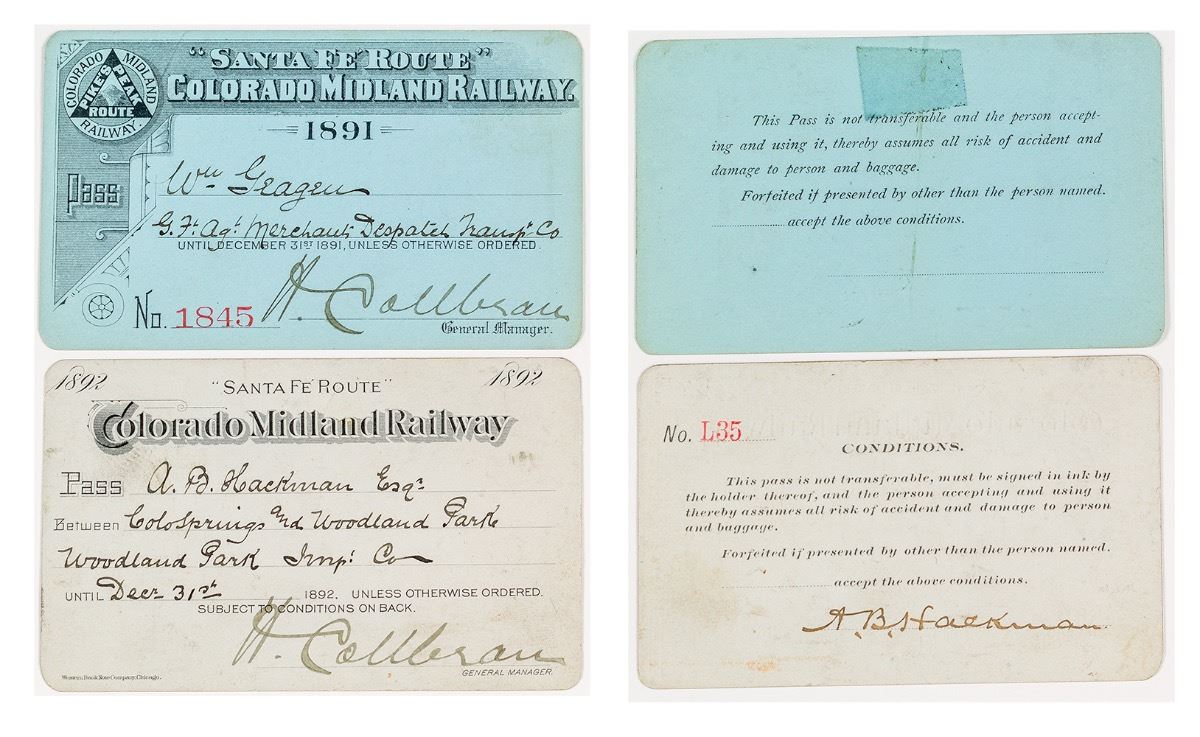 COLORADO MIDLAND
RAILWAY
PIKE'S PEAK
ROUTE
"SANTA FE ROUTE"
COLORADO MIDLAND RAILWAY.
1891
Pass
Wm Geagen
G. Ft. Agt. Merchants Despatch Transpt. Co
UNTIL DECEMBER 31ST 1891, UNLESS OTHERWISE ORDERED.
No. 1845
H. Collbran
General Manager.
This Pass is not transferable and the person accept-
ing and using it, thereby assumes all risk of accident and
damage to person and baggage.
Forfeited if presented by other than the person named.
accept the above conditions.
1892 1892
"SANTA FE ROUTE"
Colorado Midland Railway
Pass A. B. Hackman Esqr.
Between Colo Springs and Woodland Park
Woodland Park Impt. Co
UNTIL Decr 31st 1892. UNLESS OTHERWISE ORDERED.
SUBJECT TO CONDITIONS ON BACK.
H. Collbran
GENERAL MANAGER.
Western Bank Note Company, Chicago.
No. L35
CONDITIONS.
This pass is not transferable, must be signed in ink by
the holder thereof, and the person accepting and using it
thereby assumes all risk of accident and damage to person
and baggage.
Forfeited if presented by other than the person named.
accept the above conditions.
A. B. Hackman